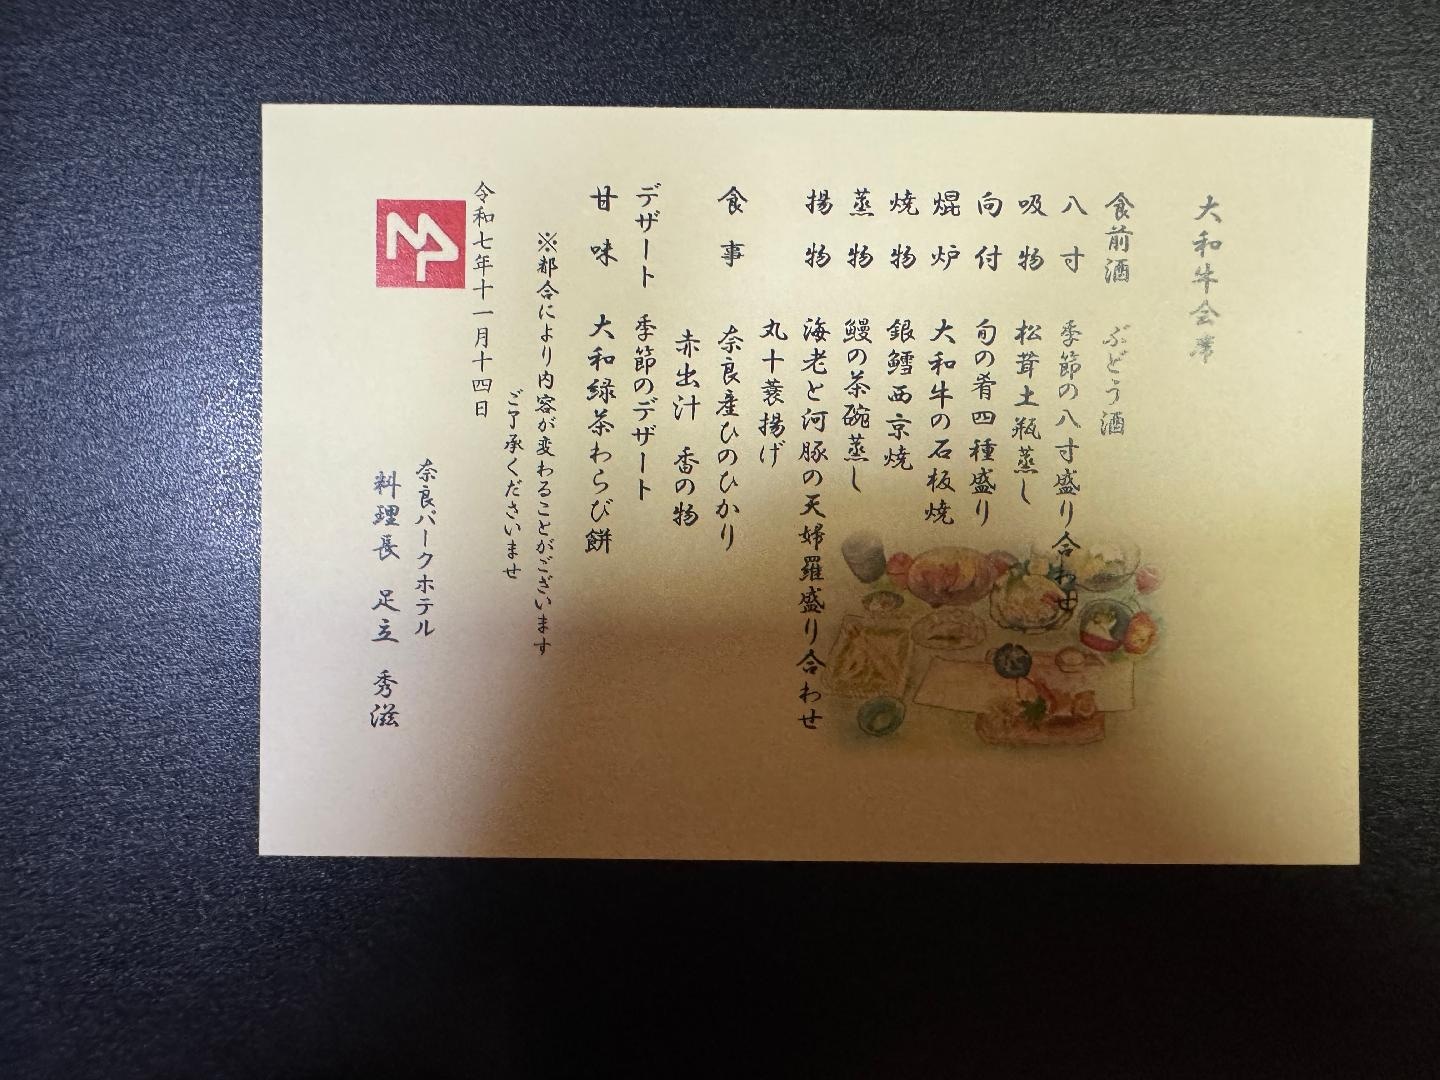 大和牛会席
食前酒 ぶどう酒
八寸 季節の八寸盛り合わせ
吸物 松茸土瓶蒸し
向付 旬の肴四種盛り
焜炉 大和牛の石板焼
焼物 銀鱈西京焼
蒸物 鰻の茶碗蒸し
揚物 海老と河豚の天婦羅盛り合わせ
丸十蓑揚げ
食事 奈良産ひのひかり
赤出汁 香の物
デザート 季節のデザート
甘味 大和緑茶わらび餅
※都合により内容が変わることがございます
ご了承くださいませ
令和七年十一月十四日
奈良パークホテル
料理長 足立 秀滋